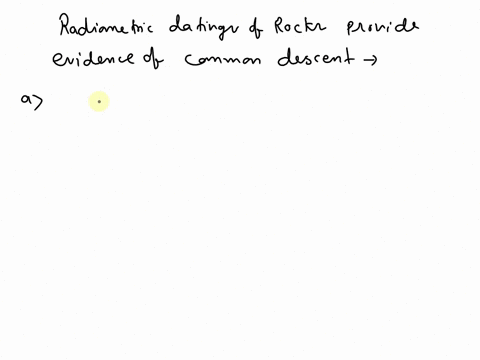 Radiometric datings of Rocks provide
evidence of common descent →
a>